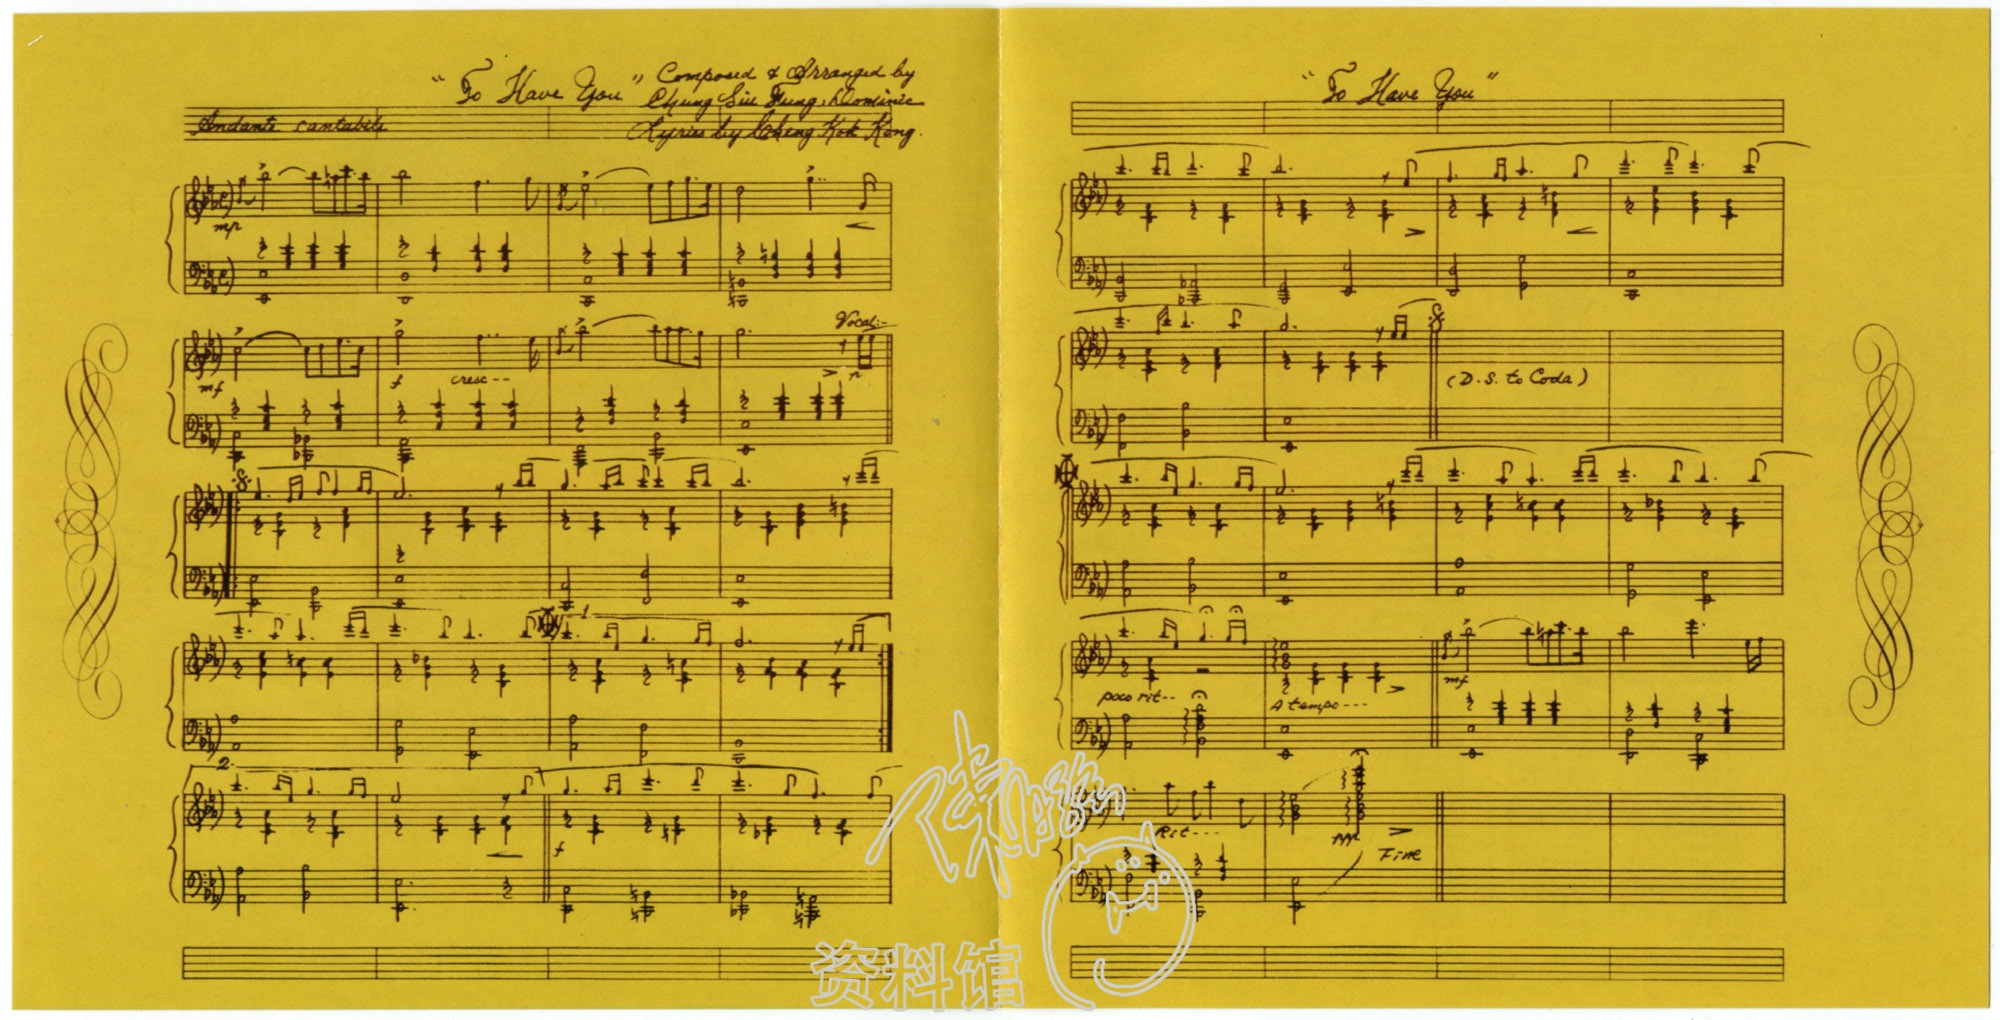 "To Have You"
Composed & Arranged by
Chung Siu Fung, Dominic
Lyrics by Cheng Kok Kong.
Andante cantabile
mp
Vocal:-
mf
f
cresc--
p
1
2.
f
"To Have You"
(D.S. to Coda)
poco rit--
A tempo---
mf
Rit----
ppp
Fine
资料馆